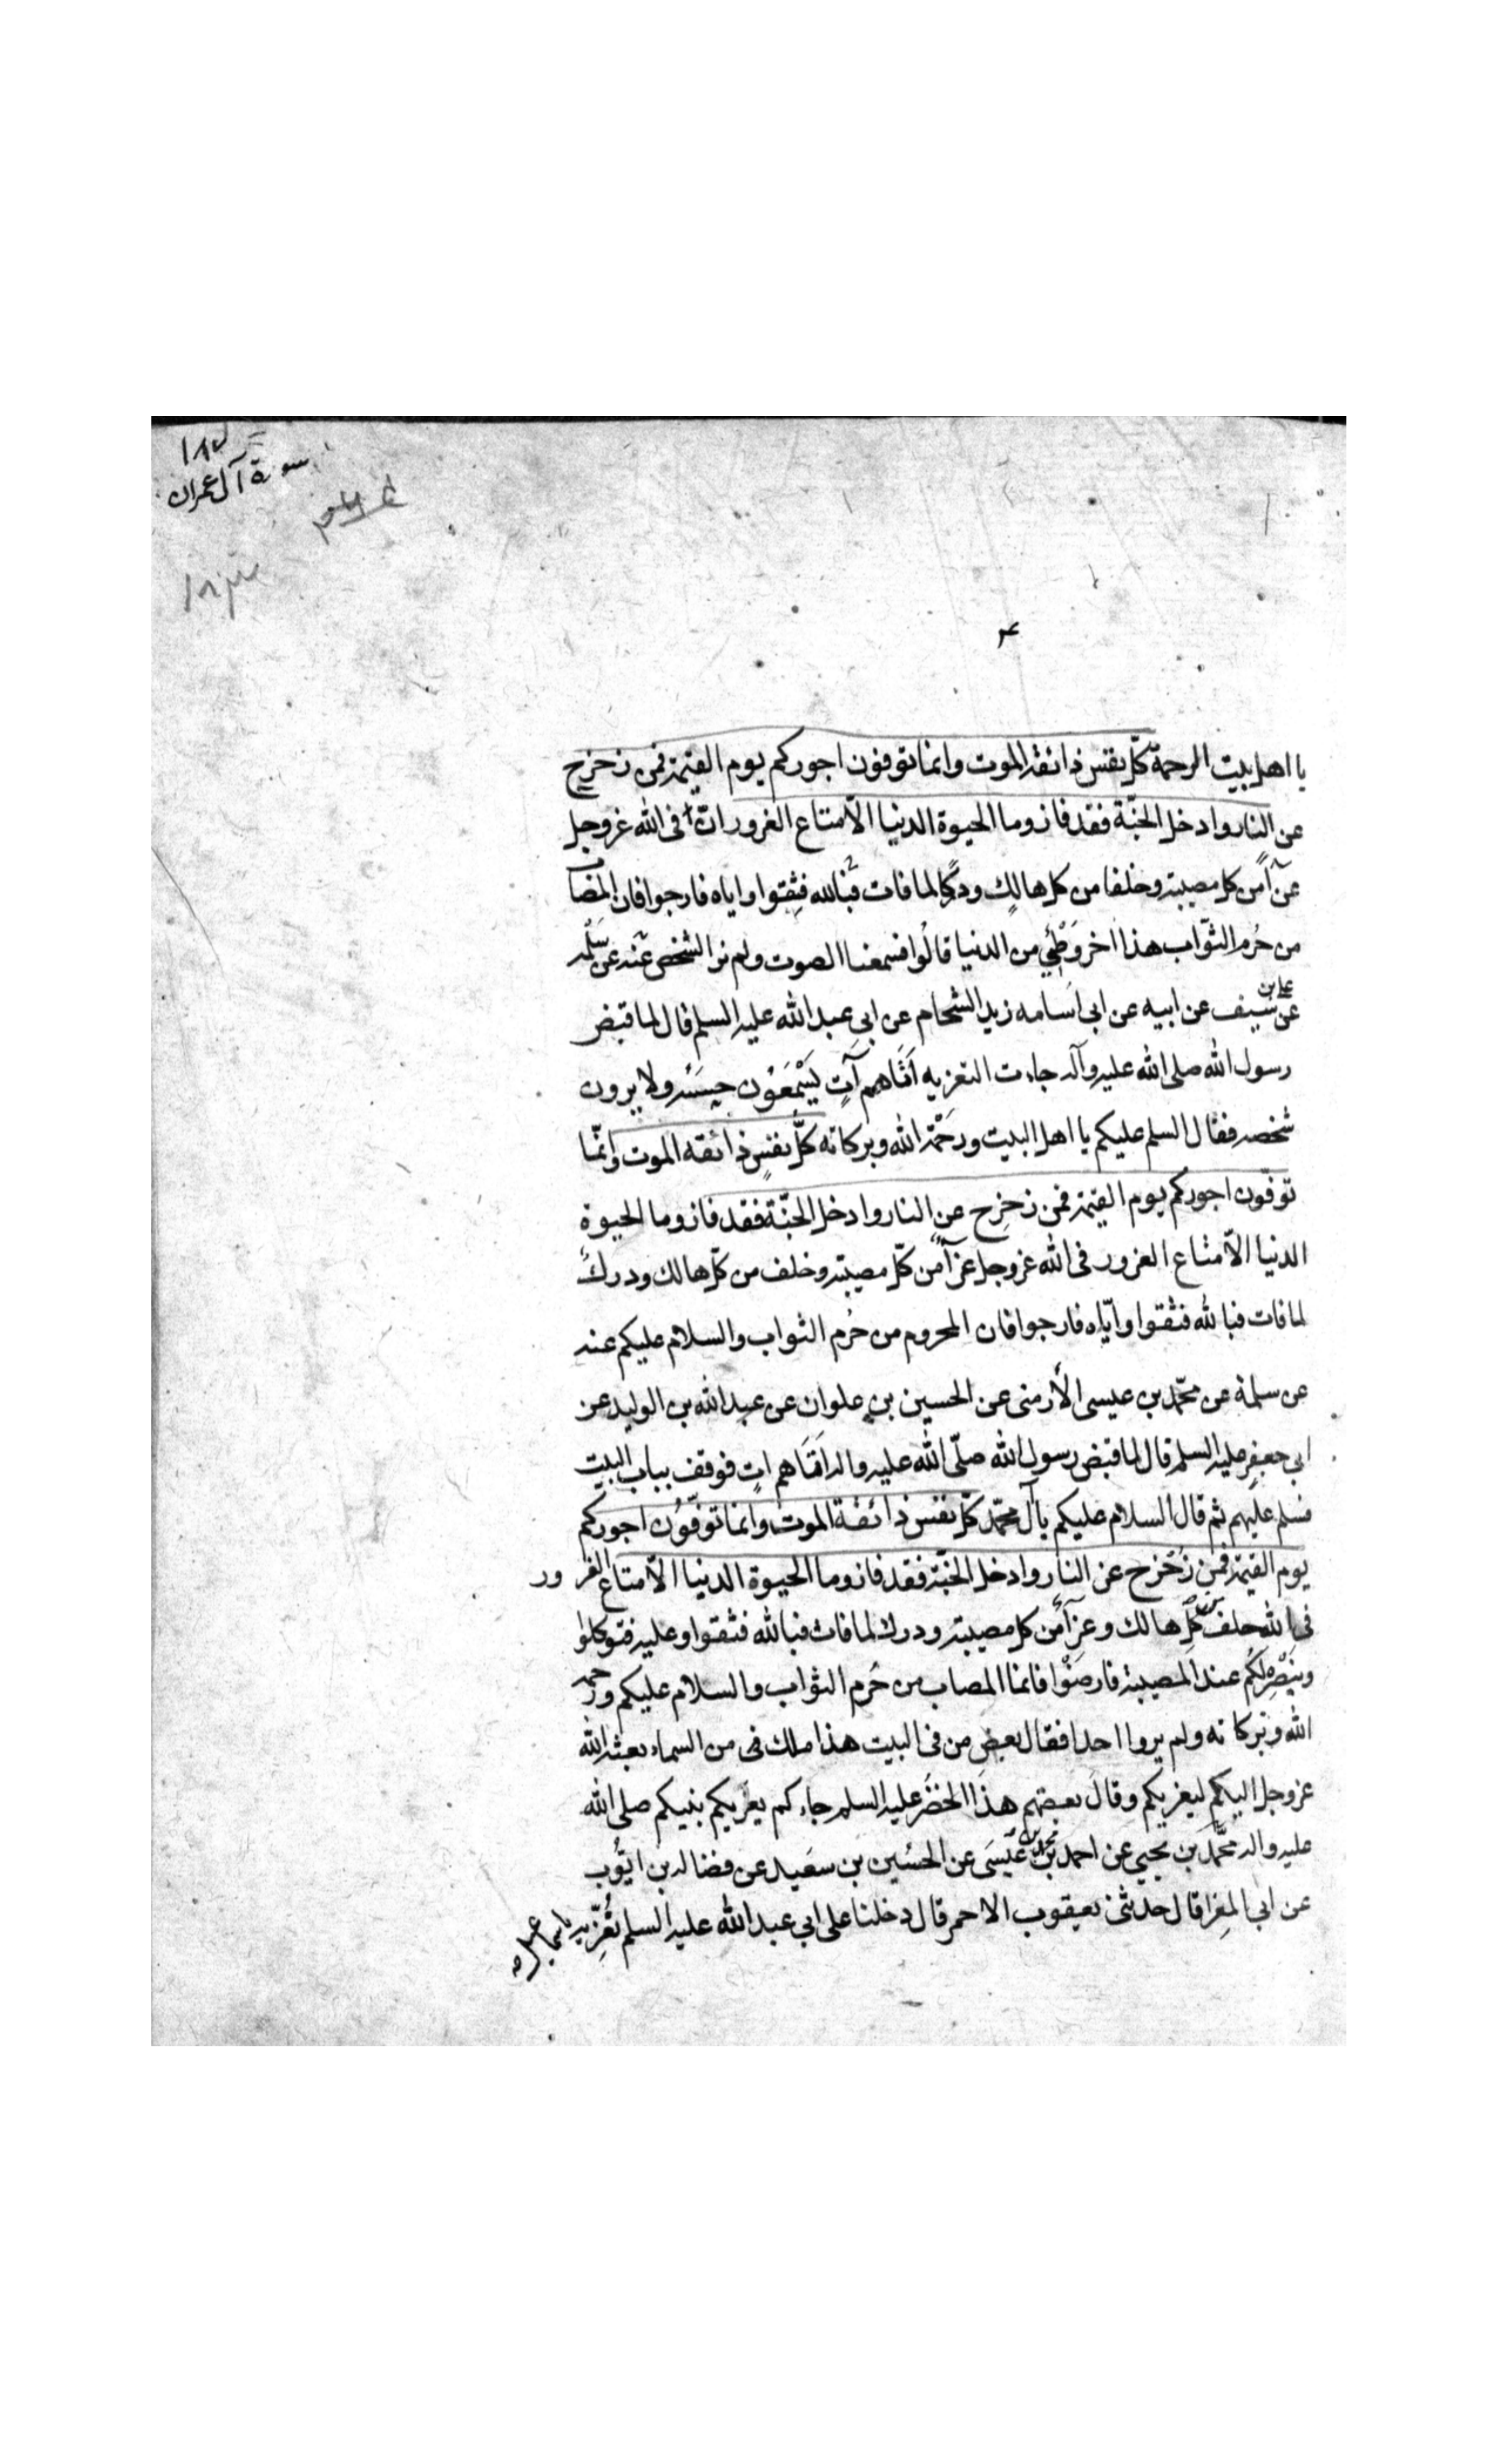 ١٨٢
سورة آل عمران
يا اهل بيت الرحمة كلّ نفس ذائقة الموت وانما توفون اجوركم يوم القيمة فمن زحزح
عن النار وادخل الجنّة فقد فاز وما الحيوة الدنيا الّا متاع الغرور انّ فى الله عزوجل
عزآً من كل مصيبة وخلفا من كل هالك ودركاً لما فات فبالله فثقوا واياه فارجوا فان المصاب
من حُرم الثوّاب هذا اخر وَطْئِي من الدنيا قالُوا فسمعنا الصوت ولم نر الشخص عنه عن سَلَمه
عن على بن سَيف عن ابيه عن ابى اُسَامه زيد الشحّام عن ابى عبد الله عليه السلم قال لما قبض
رسول الله صلى الله عليه وآله جاءت التعزيه اَتَاهم آتٍ يَسْمَعُون حِسَّهُ ولا يرون
شخصه فقال السلم عليكم يا اهل البيت ورَحْمَة الله وبركاته كلُّ نفسٍ ذائقه الموت وانّما
توفّون اجوركم يوم القيمة فمن زحزح عن النار وادخل الجنّة فقد فاز وما الحيوة
الدنيا الّا متاع الغرور فى الله عزوجل عزآً من كلّ مصيبة وخلف من كلّ هالك ودركٌ
لما فات فبالله فثقوا وايّاه فارجوا فان المحروم من حُرم الثواب والسلام عليكم عنه
عن سلمة عن محمّد بن عيسى الأرمنى عن الحسين بن علوان عن عبد الله بن الوليد عن
ابى جعفر عليه السلم قال لما قبض رسول الله صلّى الله عليه واله اَتَاهم اتٍ فوقف بباب البيت
فسلم عليهم ثم قال السلام عليكم يا آل محمّد كلّ نفس ذائقة الموت وانما توفّون اجوركم
يوم القيمة فمن زُحزح عن النار وادخل الجنّة فقد فاز وما الحيوة الدنيا الّا متاع الغرور
فى الله خلف من كلّ هالك وعزآً من كل مصيبة ودرك لما فات فبالله فثقوا وعليه فتوكلوا
وبنَصْرِه لكم عند المصيبة فارضَوْا فانما المصاب من حُرم الثواب والسلام عليكم ورحمة
الله وبركاته ولم يروا احدا فقال بعض من فى البيت هذا ملك فى من السماء بعثه الله
عزوجل اليكم ليعزيكم وقال بعضهم هذا الخضرُ عليه السلم جاءكم يعزيكم بنبيكم صلى الله
عليه واله محمّد بن يحيى عن احمد بن محمد بن عيسَى عن الحسَين بن سعَيد عن فضاله بن ايّوب
عن ابى المِغرا قال حدثنى يعقوب الاحمر قال دخلنا على ابى عبد الله عليه السلم نُعَزّيه باسماعيل